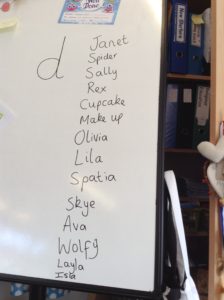 Well
Done
d
Janet
Spider
Sally
Rex
Cupcake
Make up
Olivia
Lila
Spatia
Skye
Ava
Wolfy
Layla
Isla